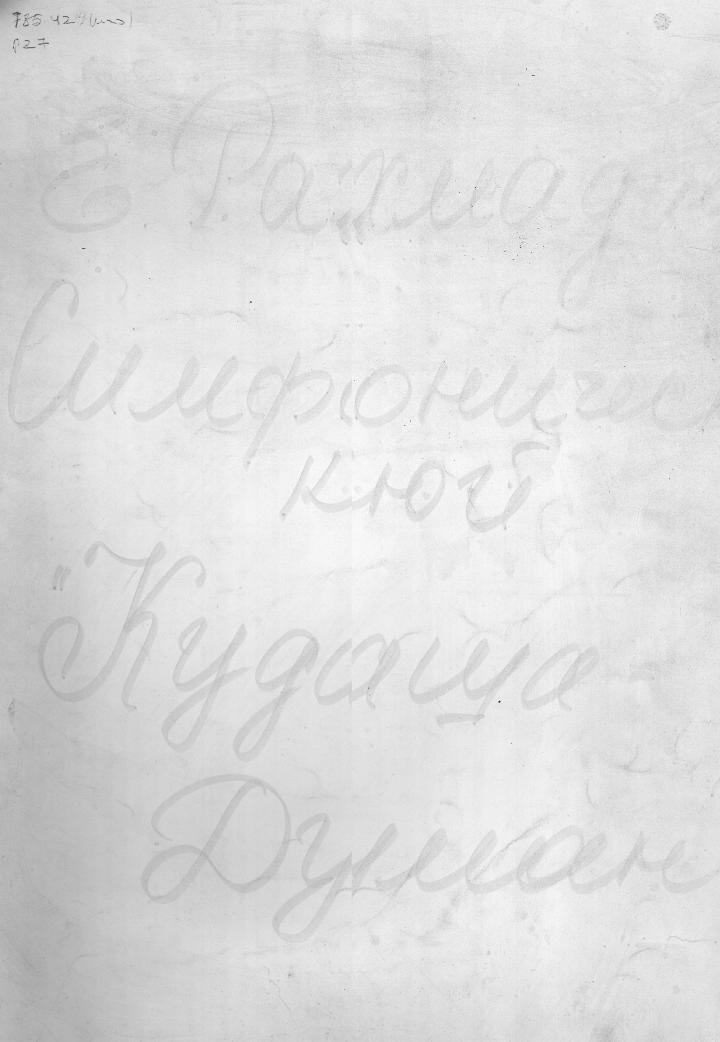 785.42
P27
Е. Рахмад
Симфоническ
кюй
"Кудаша-
Думан